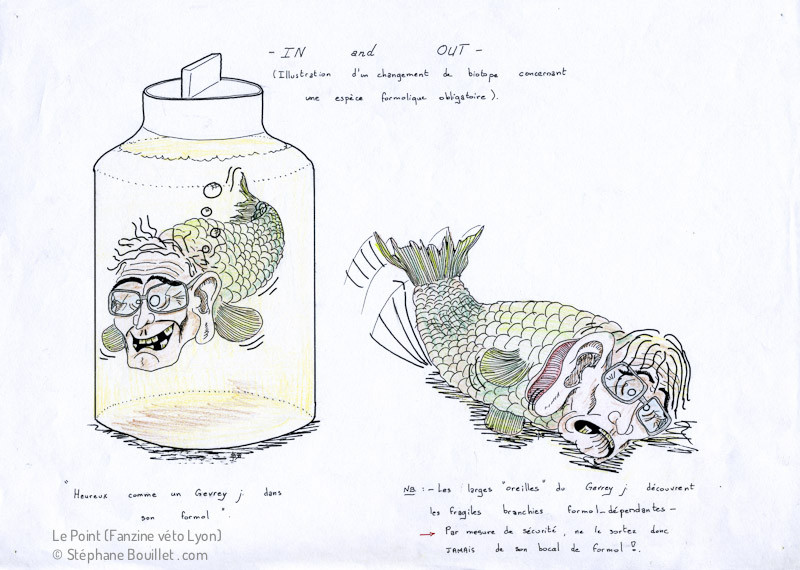 - IN and OUT -
(Illustration d'un changement de biotope concernant
une espèce formolique obligatoire).
"Heureux comme un Gevrey j. dans
son formol".
NB : - Les larges "oreilles" du Gevrey j découvrent
les fragiles branchies formol-dépendantes -
→ Par mesure de sécurité, ne le sortez donc
JAMAIS de son bocal de formol !
Le Point (Fanzine véto Lyon)
© Stéphane Bouillet.com